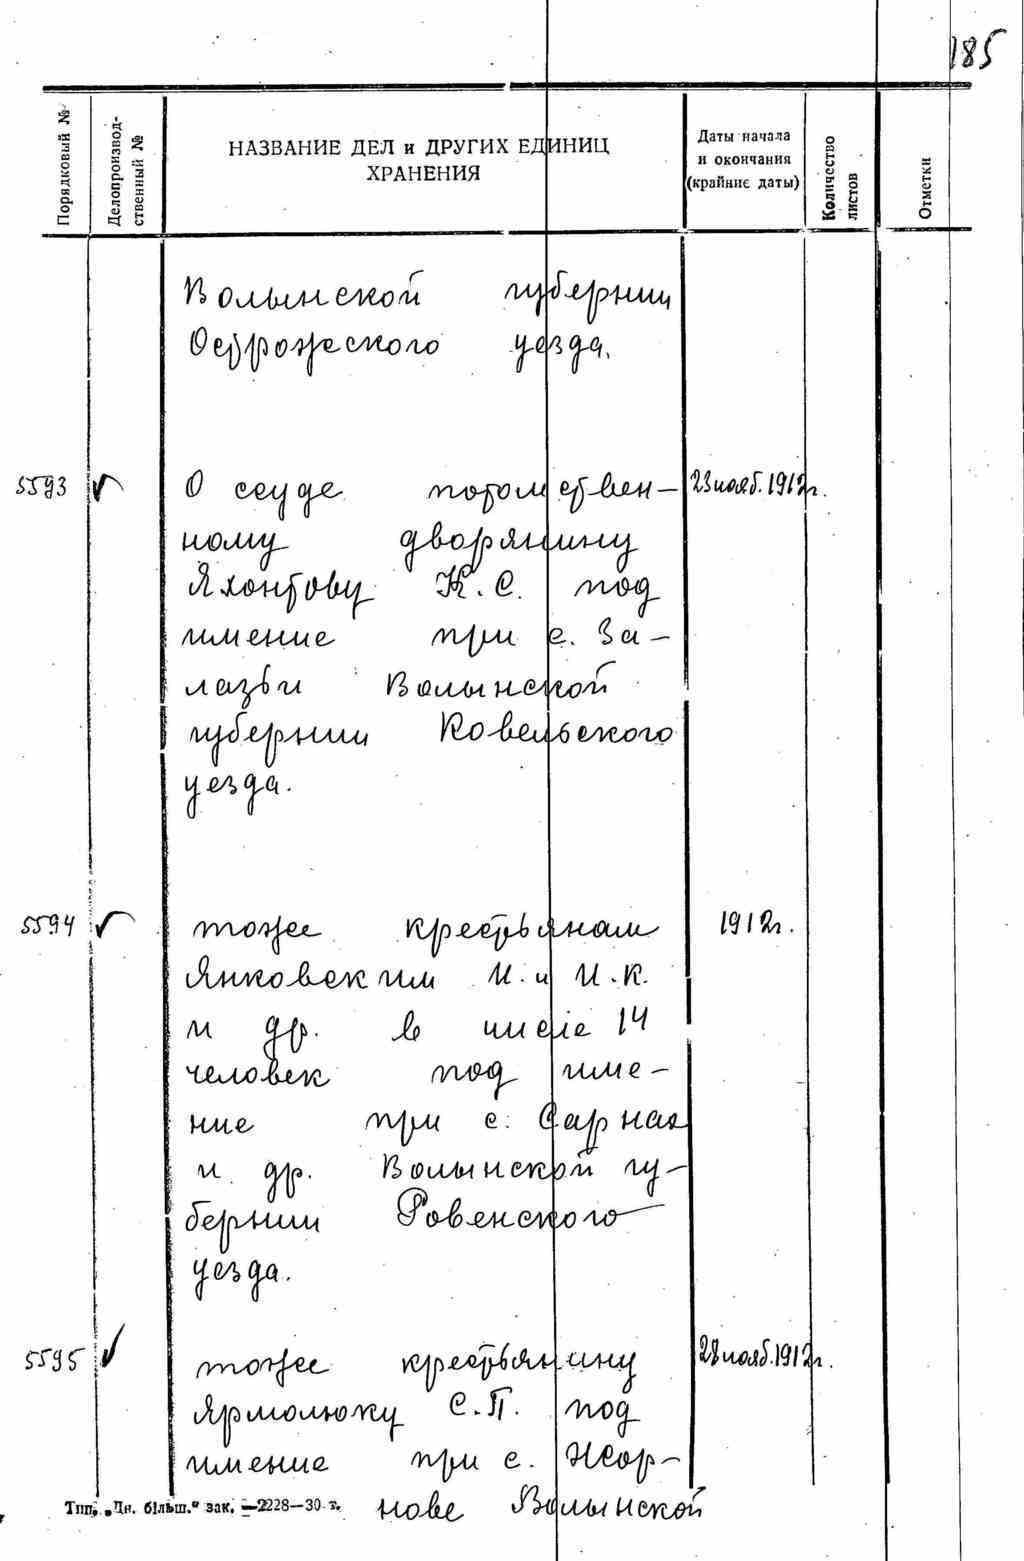 185
Порядковый №
Делопроизвод-
ственный №
НАЗВАНИЕ ДЕЛ и ДРУГИХ ЕДИНИЦ
ХРАНЕНИЯ
Даты начала
и окончания
(крайние даты)
Количество
листов
Отметки
Волынской губернии
Острожеского уезда.
5593 ✓ О ссуде потомствен- 23 нояб. 1912г.
ному дворянину
Яхонтову К. С. под
имение при с. За-
лазьи Волынской
губернии Ковельского
уезда.
5594 ✓ тоже крестьянам 1912г.
Янковским И. и И. К.
и др. в числе 14
человек под име-
ние при с. Сарнах
и др. Волынской гу-
бернии Ровенского
уезда.
5595 ✓ тоже крестьянину 28 нояб. 1912г.
Ярмолюку С. П. под
имение при с. Жор-
нове Волынской
Тип. „Дн. більш." зак. —2228—30 т.